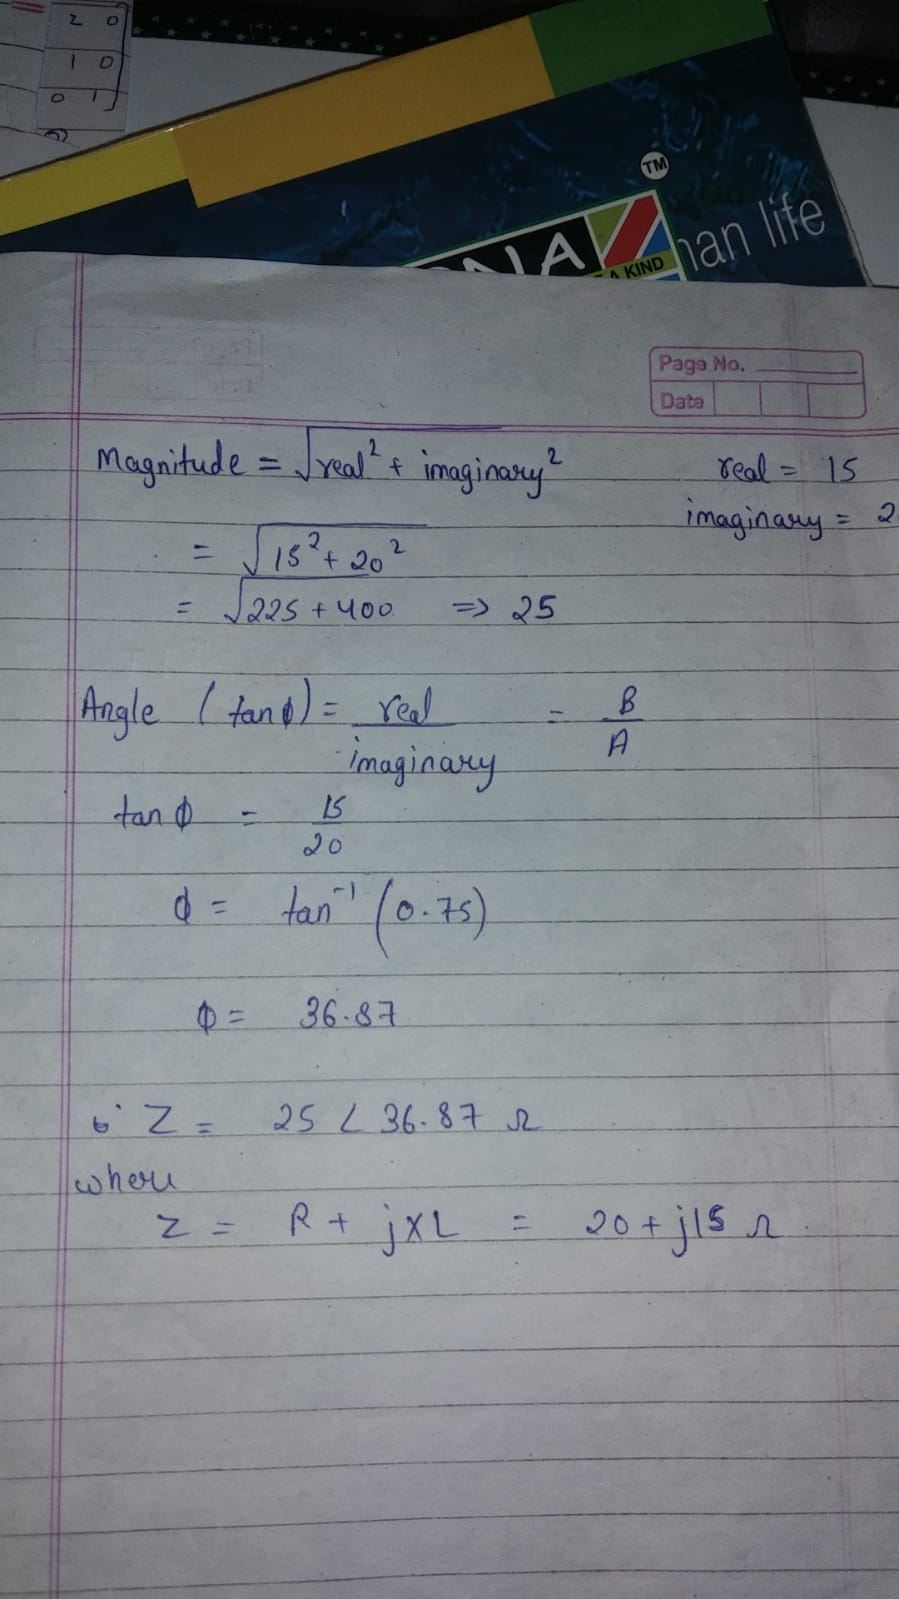 2 0
1 0
0 1
TM
NA
A KIND
han life
Page No.
Date
Magnitude = √real² + imaginary²
real = 15
imaginary = 2
= √15² + 20²
= √225 + 400 => 25
Angle (tan ϕ) = real / imaginary = B / A
tan ϕ = 15 / 20
ϕ = tan⁻¹ (0.75)
ϕ = 36.87
Z = 25 ∠ 36.87 Ω
where
Z = R + jXL = 20 + j15 Ω